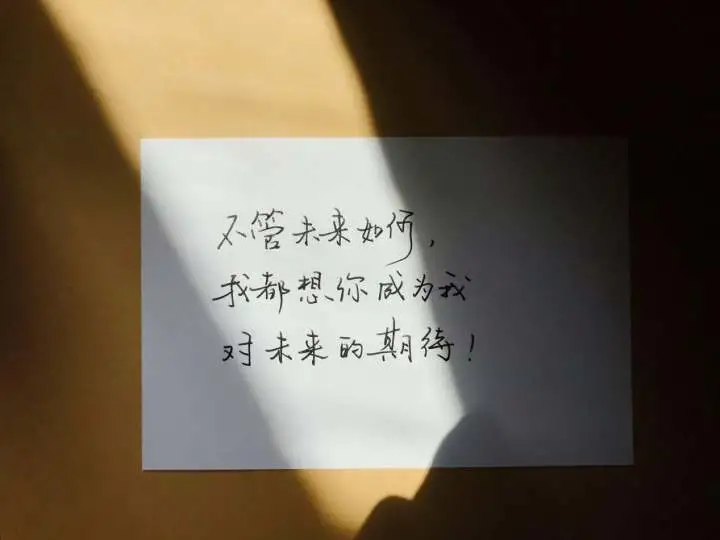 不管未来如何，
我都想你成为我
对未来的期待！